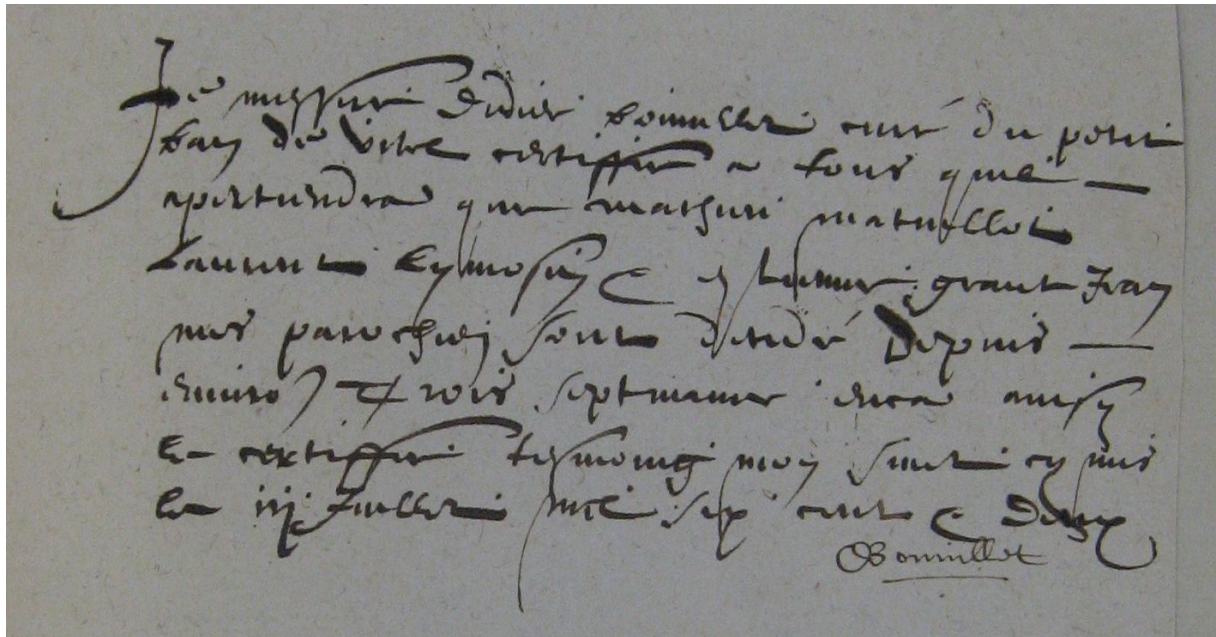 Je messire Didier bouvillet curé du petit
ban de vitel certiffie a tous quil
apertiendra que mathieu matuillot
Laurent Eymosin & grant Jean
mes parochien sont decedé depuis
enviro trois septmaine enca ainsy
le certiffie tesmoing mon sinet cy mis
le iij Juillet mil six cent & deux
Bouvillot